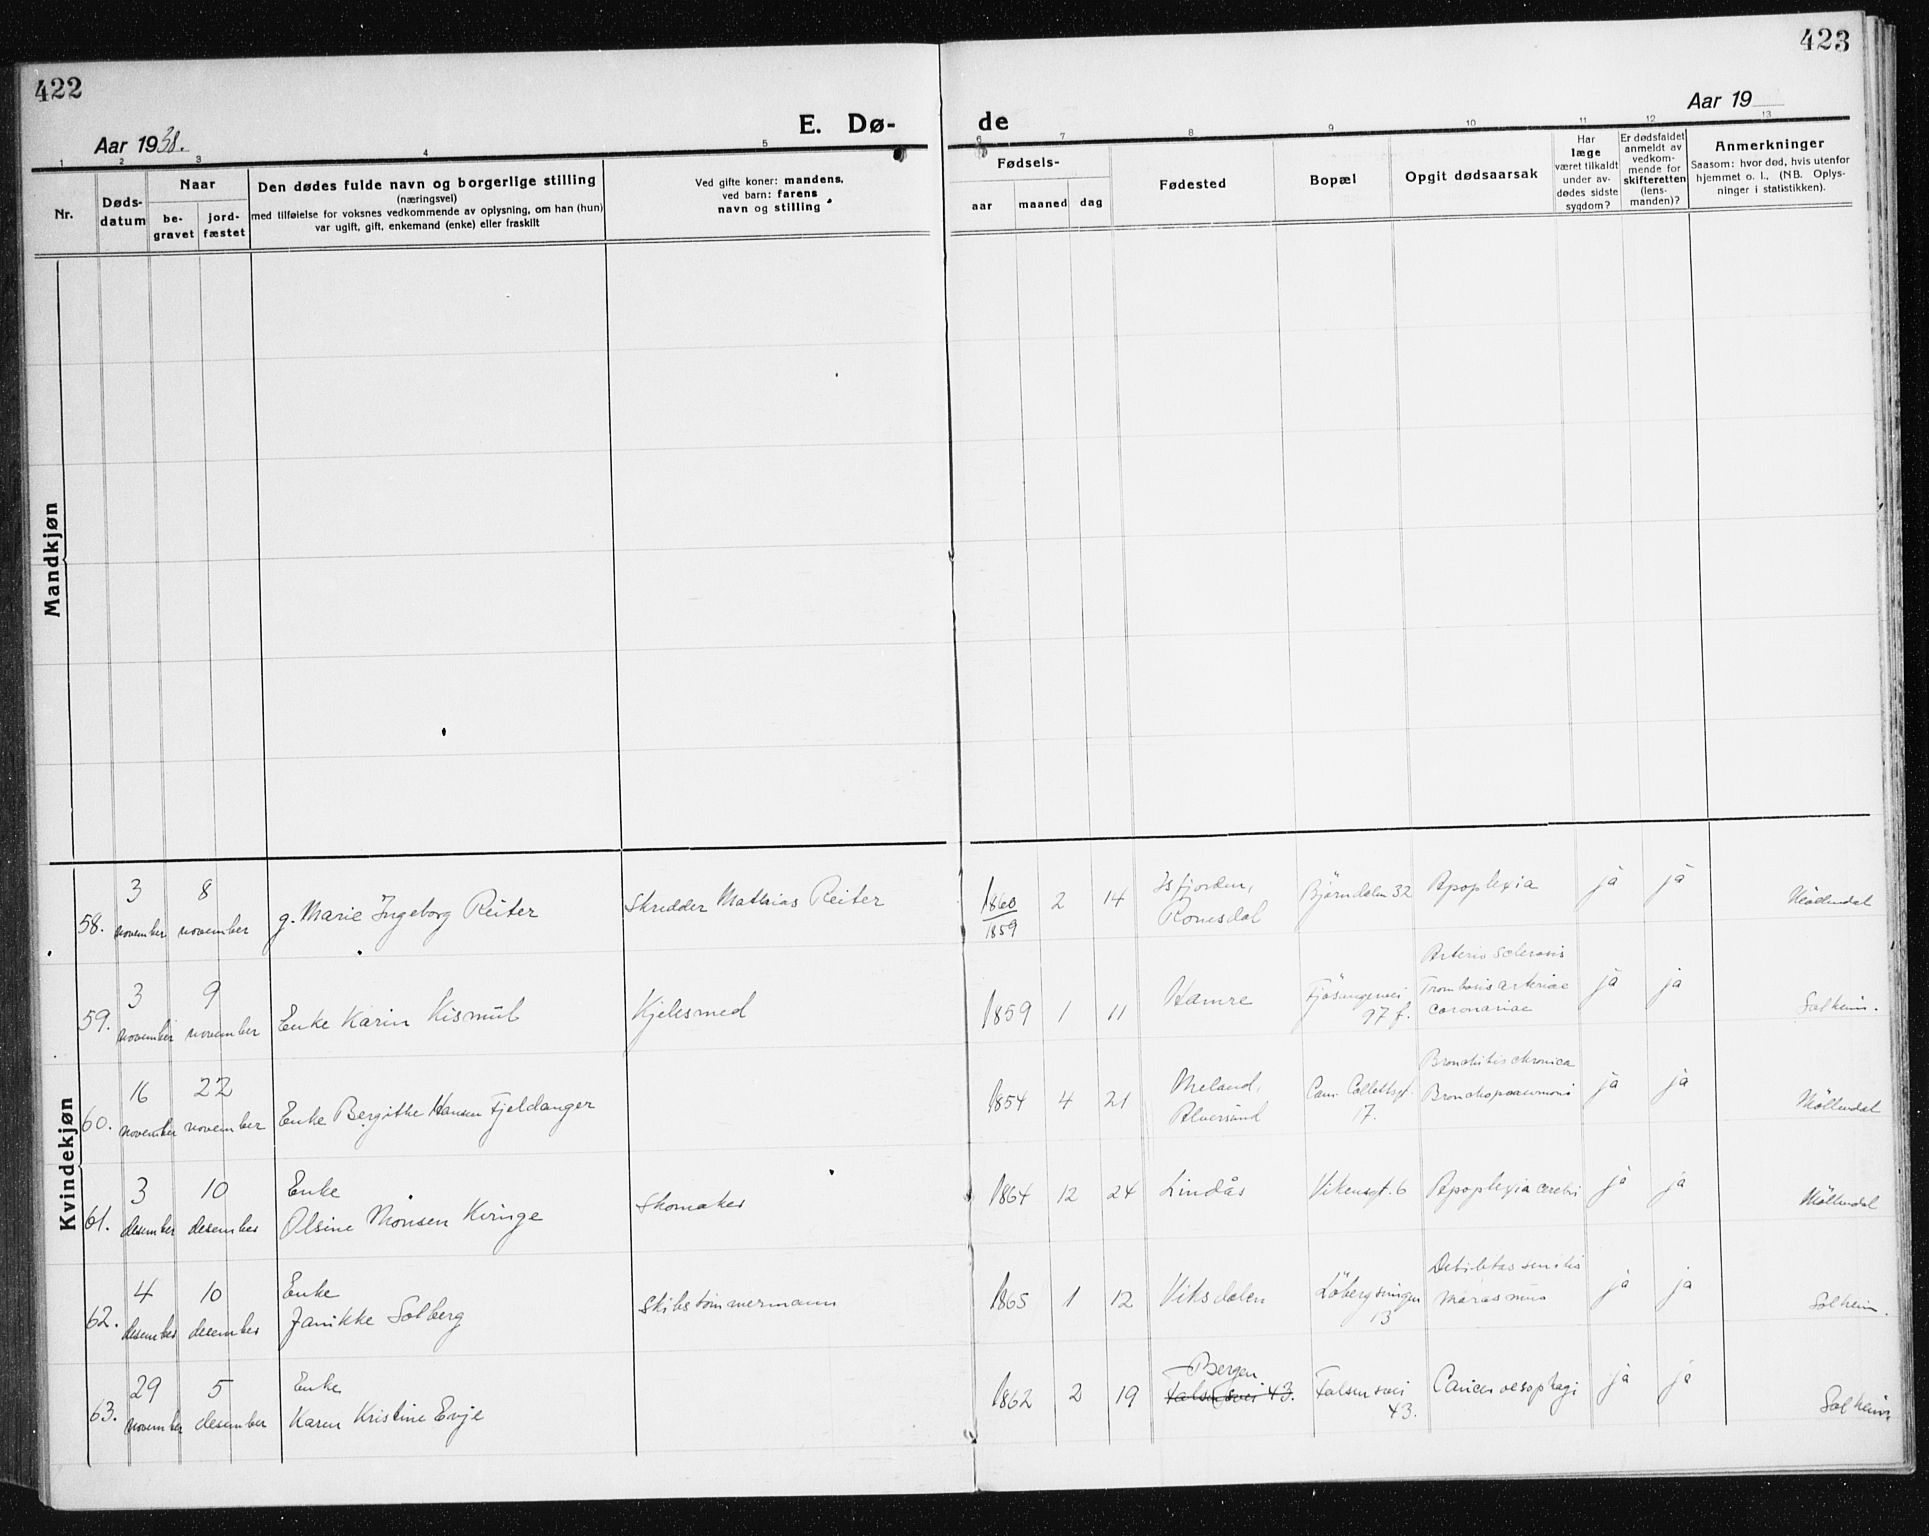 422
Aar 1938.
E. Dø-
1
2
3
4
5
Nr.
Døds-
datum
Naar
be-
gravet
jord-
fæstet
Den dødes fulde navn og borgerlige stilling
(næringsvei)
med tilføielse for voksnes vedkommende av oplysning, om han (hun)
var ugift, gift, enkemand (enke) eller fraskilt
Ved gifte koner: mandens,
ved barn: farens
navn og stilling
Mandkjøn
Kvindekjøn
58. 3 november 8 november g. Marie Ingeborg Reiter Skredder Mathias Reiter
59. 3 november 9 november Enke Karin Kismul Kjelesmed
60. 16 november 22 november Enke Bergithe Hansen Fjeldanger
61. 3 desember 10 desember Enke
Olsine Monsen Kvinge Skomaker
62. 4 desember 10 desember Enke
Janikke Solberg Skibstømmermann
63. 29 november 5 desember Enke
Karen Kristine Evje
423
Aar 19
de
6
7
8
9
10
11
12
13
Fødsels-
aar
maaned
dag
Fødested
Bopæl
Opgit dødsaarsak
Har
læge
været tilkaldt
under av-
dødes sidste
sygdom?
Er dødsfaldet
anmeldt av
vedkom-
mende for
skifteretten
(lens-
manden)?
Anmerkninger
Saasom: hvor død, hvis utenfor
hjemmet o. l., (NB. Oplys-
ninger i statistikken).
1860
1859 2 14 Isfjorden,
Romsdal Björndalen 32 Apoplexia ja ja Möllendal
1859 1 11 Hamre Fjösangervei
97 f. Arterio sclerosis
Trombosis arteriae
coronariae ja ja Solheim.
1854 4 21 Meland,
Alversund Cam. Collettsgt.
17. Bronchitis chronica
ja ja Möllendal
1864 12 24 Lindås Vikensgt. 6 Apoplexia cerebri ja ja Möllendal
1865 1 12 Viksdalen
13 Debilitas senilis
Marasmus ja ja Solheim.
1862 2 19 Bergen
Falsensvei 43. Falsensvei
43. Cancer oesophagi ja ja Solheim